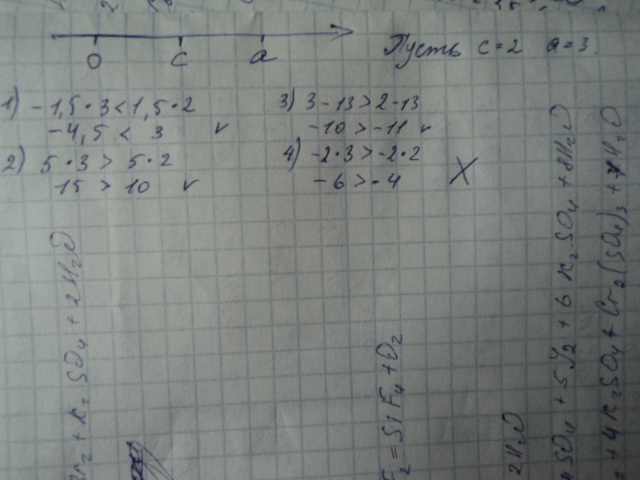 0 c a Пусть c=2 a=3
1) -1,5·3<1,5·2
-4,5 < 3 v
2) 5·3 > 5·2
15 > 10 v
3) 3-13>2-13
-10 > -11 v
4) -2·3>-2·2
-6 >-4 X
r₂ + K₂SO₄ + 2H₂O
F₂ = SiF₄ + O₂
2H₂O
SO₄ + 5J₂ + 6K₂SO₄ + 8H₂O
+ 4K₂SO₄ + Cr₂(SO₄)₃ + 7H₂O